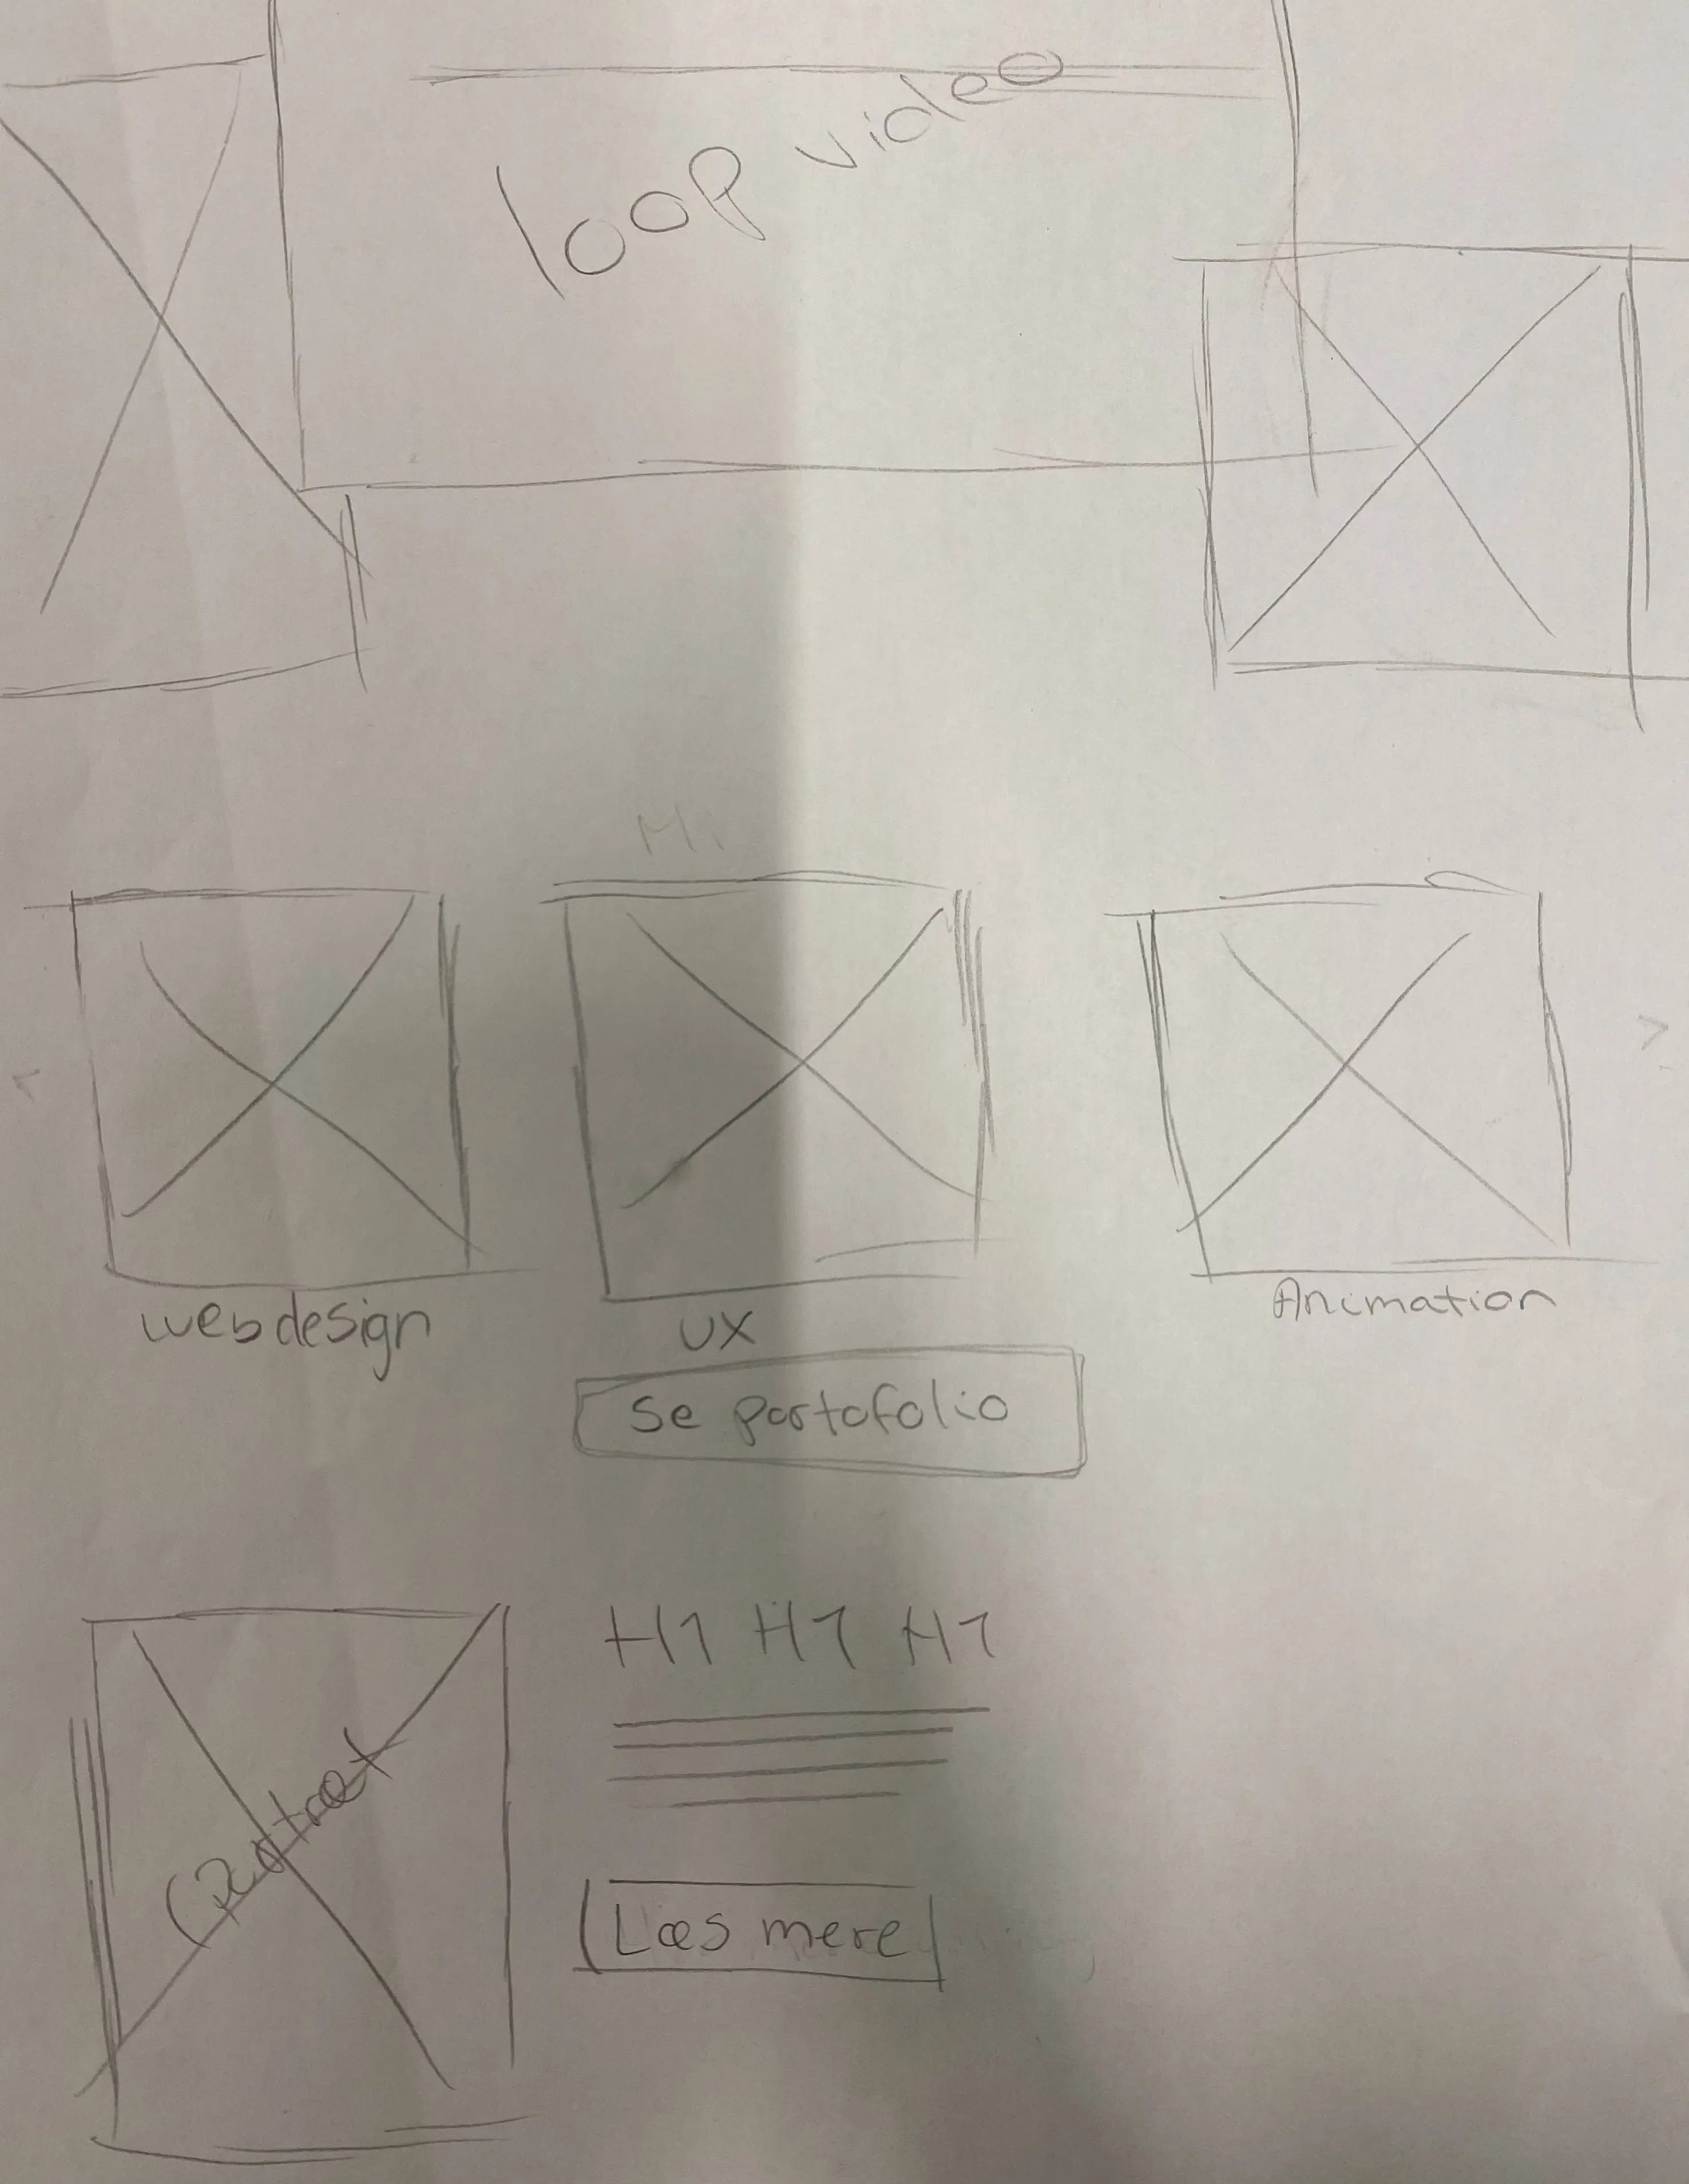 loop video
<
>
webdesign
UX
Animation
Se portofolio
H1 H1 H1
Læs mere